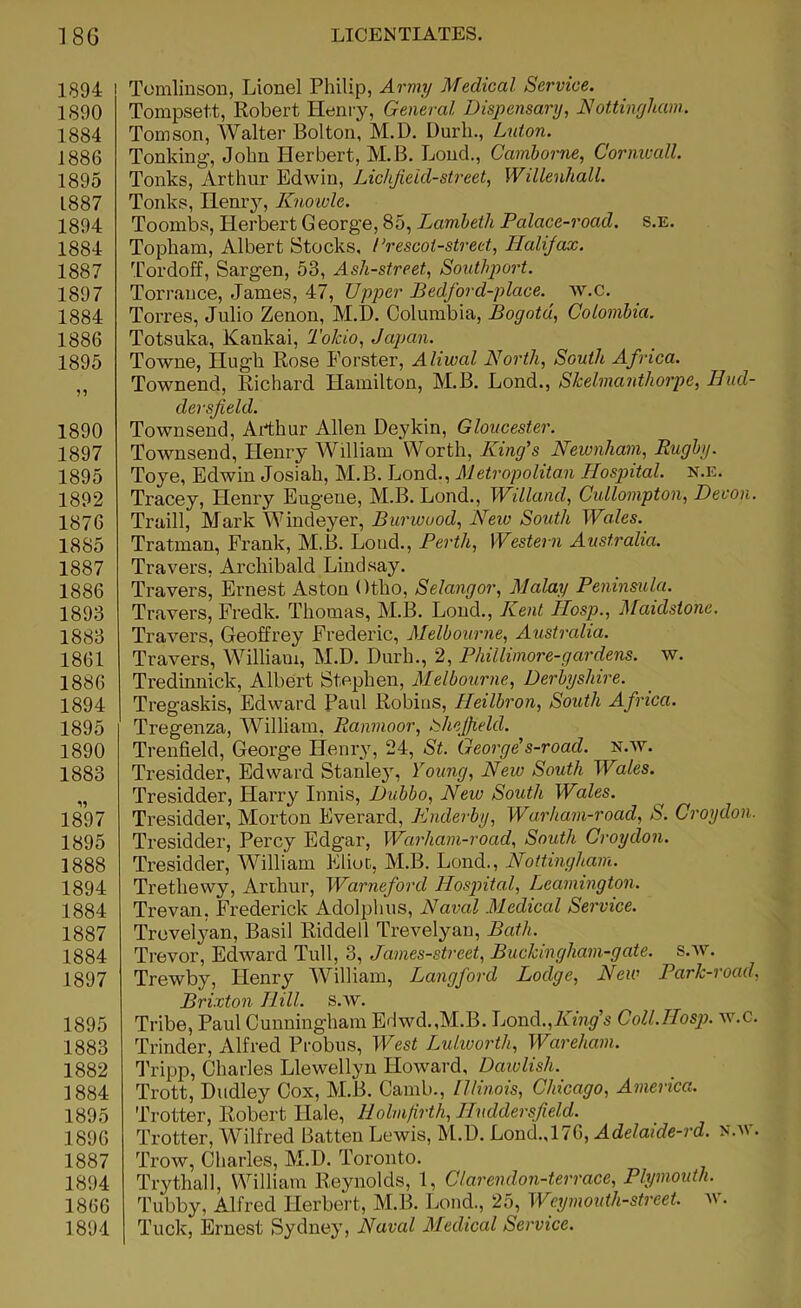 186 LICENTIATES.
1894 Tomlinson, Lionel Philip, Army Medical Service.
1890 Tompsett, Robert Henry, General Dispensary, Nottingham.
1884 Tomson, Walter Bolton, M.D. Durh., Luton.
1886 Tonking, John Herbert, M.B. Lond., Camborne, Cornwall.
1895 Tonks, Arthur Edwin, Lichfield-street, Willenhall.
1887 Tonks, Henry, Knowle.
1894 Toombs, Herbert George, 85, Lambeth Palace-road. S.E.
1884 Topham, Albert Stocks, Prescot-street, Halifax.
1887 Tordoff, Sargen, 53, Ash-street, Southport.
1897 Torrance, James, 47, Upper Bedford-place. W.C.
1884 Torres, Julio Zenon, M.D. Columbia, Bogotá, Colombia.
1886 Totsuka, Kankai, Tokio, Japan.
1895 Towne, Hugh Rose Forster, Aliwal North, South Africa.
" Townend, Richard Hamilton, M.B. Lond., Skelmanthorpe, Hud-
dersfield.
1890 Townsend, Arthur Allen Deykin, Gloucester.
1897 Townsend, Henry William Worth, King's Newnham, Rugby.
1895 Toye, Edwin Josiah, M.B. Lond., Metropolitan Hospital. N.E.
1892 Tracey, Henry Eugene, M.B. Lond., Willand, Cullompton, Devon.
1876 Traill, Mark Windeyer, Burwood, New South Wales.
1885 Tratman, Frank, M.B. Lond., Perth, Western Australia.
1887 Travers, Archibald Lindsay.
1886 Travers, Ernest Aston Otho, Selangor, Malay Peninsula.
1893 Travers, Fredk. Thomas, M.B. Lond., Kent Hosp., Maidstone.
1883 Travers, Geoffrey Frederic, Melbourne, Australia.
1861 Travers, William, M.D. Durh., 2, Phillimore-gardens. W.
1886 Tredinnick, Albert Stephen, Melbourne, Derbyshire.
1894 Tregaskis, Edward Paul Robins, Heilbron, South Africa.
1895 Tregenza, William, Ranmoor, Sheffield.
1890 Trenfield, George Henry, 24, St. George's-road. N.W.
1883 Tresidder, Edward Stanley, Young, New South Wales.
" Tresidder, Harry Innis, Dubbo, New South Wales.
1897 Tresidder, Morton Everard, Enderby, Warham-road, S. Croydon.
1895 Tresidder, Percy Edgar, Warham-road, South Croydon.
1888 Tresidder, William Eliot, M.B. Lond., Nottingham.
1894 Trethewy, Arthur, Warneford Hospital, Leamington.
1884 Trevan, Frederick Adolphus, Naval Medical Service.
1887 Trevelyan, Basil Riddell Trevelyan, Bath.
1884 Trevor, Edward Tull, 3, James-street, Buckingham-gate. S.W.
1897 Trewby, Henry William, Langford Lodge, New Park-road,
Brixton Hill. S.W.
1895 Tribe, Paul Cunningham Edwd., M.B. Lond., King's Coll. Hosp. W.C.
1883 Trinder, Alfred Probus, West Lulworth, Wareham.
1882 Tripp, Charles Llewellyn Howard, Dawlish.
1884 Trott, Dudley Cox, M.B. Camb., Illinois, Chicago, America.
1895 Trotter, Robert Hale, Holmfirth, Huddersfield.
1896 Trotter, Wilfred Batten Lewis, M.D. Lond., 176, Adelaide-rd. N.W.
1887 Trow, Charles, M.D. Toronto.
1894 Trythall, William Reynolds, 1, Clarendon-terrace, Plymouth.
1866 Tubby, Alfred Herbert, M.B. Lond., 25, Weymouth-street. W.
1894 Tuck, Ernest Sydney, Naval Medical Service.